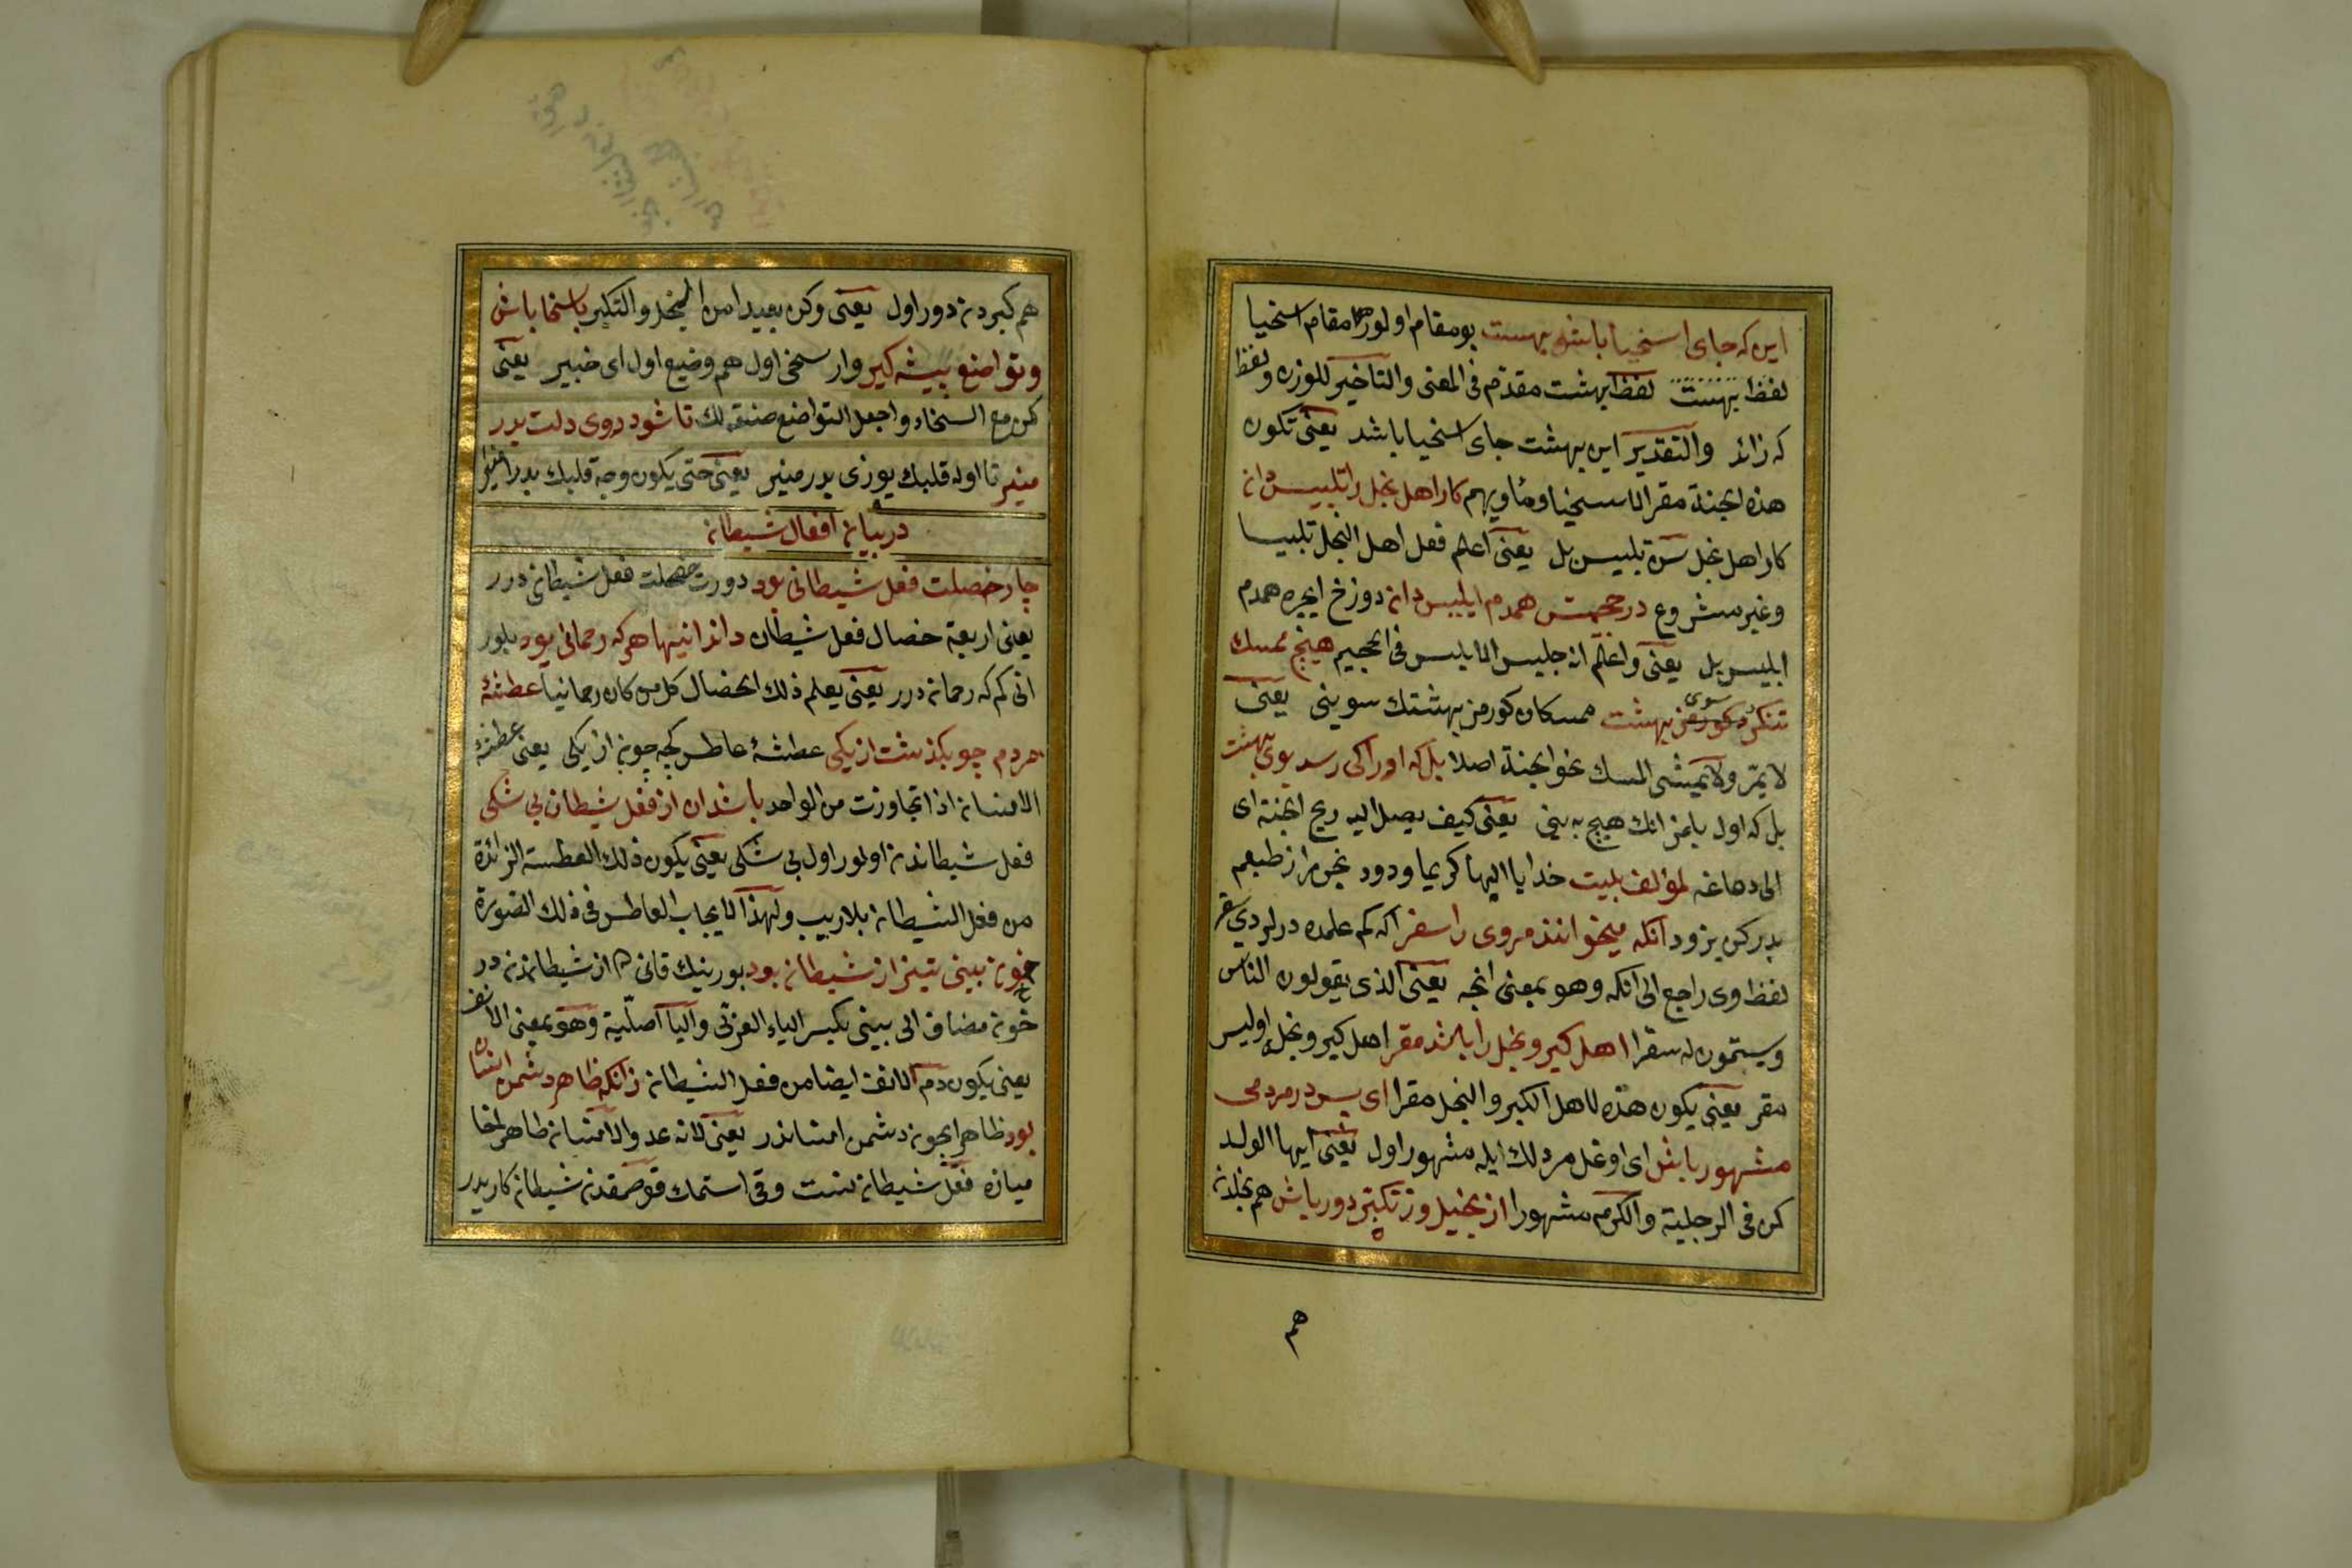 این که جای اسخیا باشد بهشت بو مقام اولور هم مقام اسخیا
لفظ بهشت لفظ بهشت مقدم فی المعنی والتأخیر للوزن ولفظ
که زائد والتقدیر این بهشت جای اسخیا باشد یعنی تکون
هذه الجنة مقر الاسخیا ومأویهم کار اهل بخل را تلبیس دان
کار اهل بخل تلبیس بل یعنی اعلم فعل اهل البخل تلبیسا
وغیر مشروع در جحیمش همدم ابلیس دان دوزخ ایچره همدم
ابلیس بل یعنی واعلم انه جلیس الابلیس فی الجحیم هیچ ممسک
ننگرد سوی بهشت ممسکان کورمز بهشتک سوینی یعنی
لا یمر ولا یمشی المسک نحو الجنة اصلا بل که اورا کی رسد بوی بهشت
بل که اول یلمز انک هیچ به ینی یعنی کیف یصل الیه ریح الجنة ای
الی دماغه لمؤلفه بیت خدایا الیها کریما ودود بخل را از طبعم
بدر کن بزود آنکه میخوانند مروی را سقر آکه کم علمده درلر دی سقر
لفظ وی راجع الی آنکه وهو بمعنی انجه یعنی الذی یقولون الناس
ویسمون له سقرا اهل کبر و بخل را باشد مقر اهل کبر و بخله اولیسر
مقر یعنی یکون هذه لاهل الکبر والبخل مقرا ای پسر در مردمی
مشهور باش ای اوغل مردلک ایله مشهور اول یعنی ایها الولد
کن فی الرجلیة والکرم مشهورا از بخیل وز تکبر دور باش هم بخلدن
هم
هم کبردن دور اول یعنی وکن بعیدا من البخل والتکبر باسخا باش
وتواضع پیشه کیر وار سخی اول هم وضیع اول ای خبیر یعنی
کن مع السخاء واجعل التواضع صنعة لک تا شود روی دلت بدر
منیر تا اوله قلبک یوزی بدر منیر یعنی حتی یکون وجه قلبک بدرا منیرا
در بیان افعال شیطان
چار خصلت فعل شیطانی بود دورت خصلت فعل شیطانی درر
یعنی اربعة خصال فعل شیطان داند اینها هر که رحمانی بود بلور
انی کم که رحمانی درر یعنی یعلم ذلک الخصال کل من کان رحمانیا عطسهٔ
مردم چو بکذشت از یکی عطسهٔ عاطس کچه چون از یکی یعنی عطسة
الانسان اذا تجاوزت من الواحد باشد آن از فعل شیطان بی شکی
فعل شیطاندن اولور اول بی شکی یعنی یکون ذلک العطسة الزائدة
من فعل الشیطان بلاریب ولهذا لا یجاب العاطس فی ذلک الصورة
خون بینی نیز از شیطان بود بورنک قانی هم از شیطاندن در
خون مضاف الی بینی بکسر الیاء العربی والیاء اصلیة وهو بمعنی الانف
یعنی یکون دم الانف ایضا من فعل الشیطان زانکه ظاهر دشمن انسان
بود ظاهر ایچون دشمن انساندر یعنی لانه عدو الانسان ظاهر الخفا
میازه فعل شیطانست وقی استمک قوصمقدن شیطان کاریدر